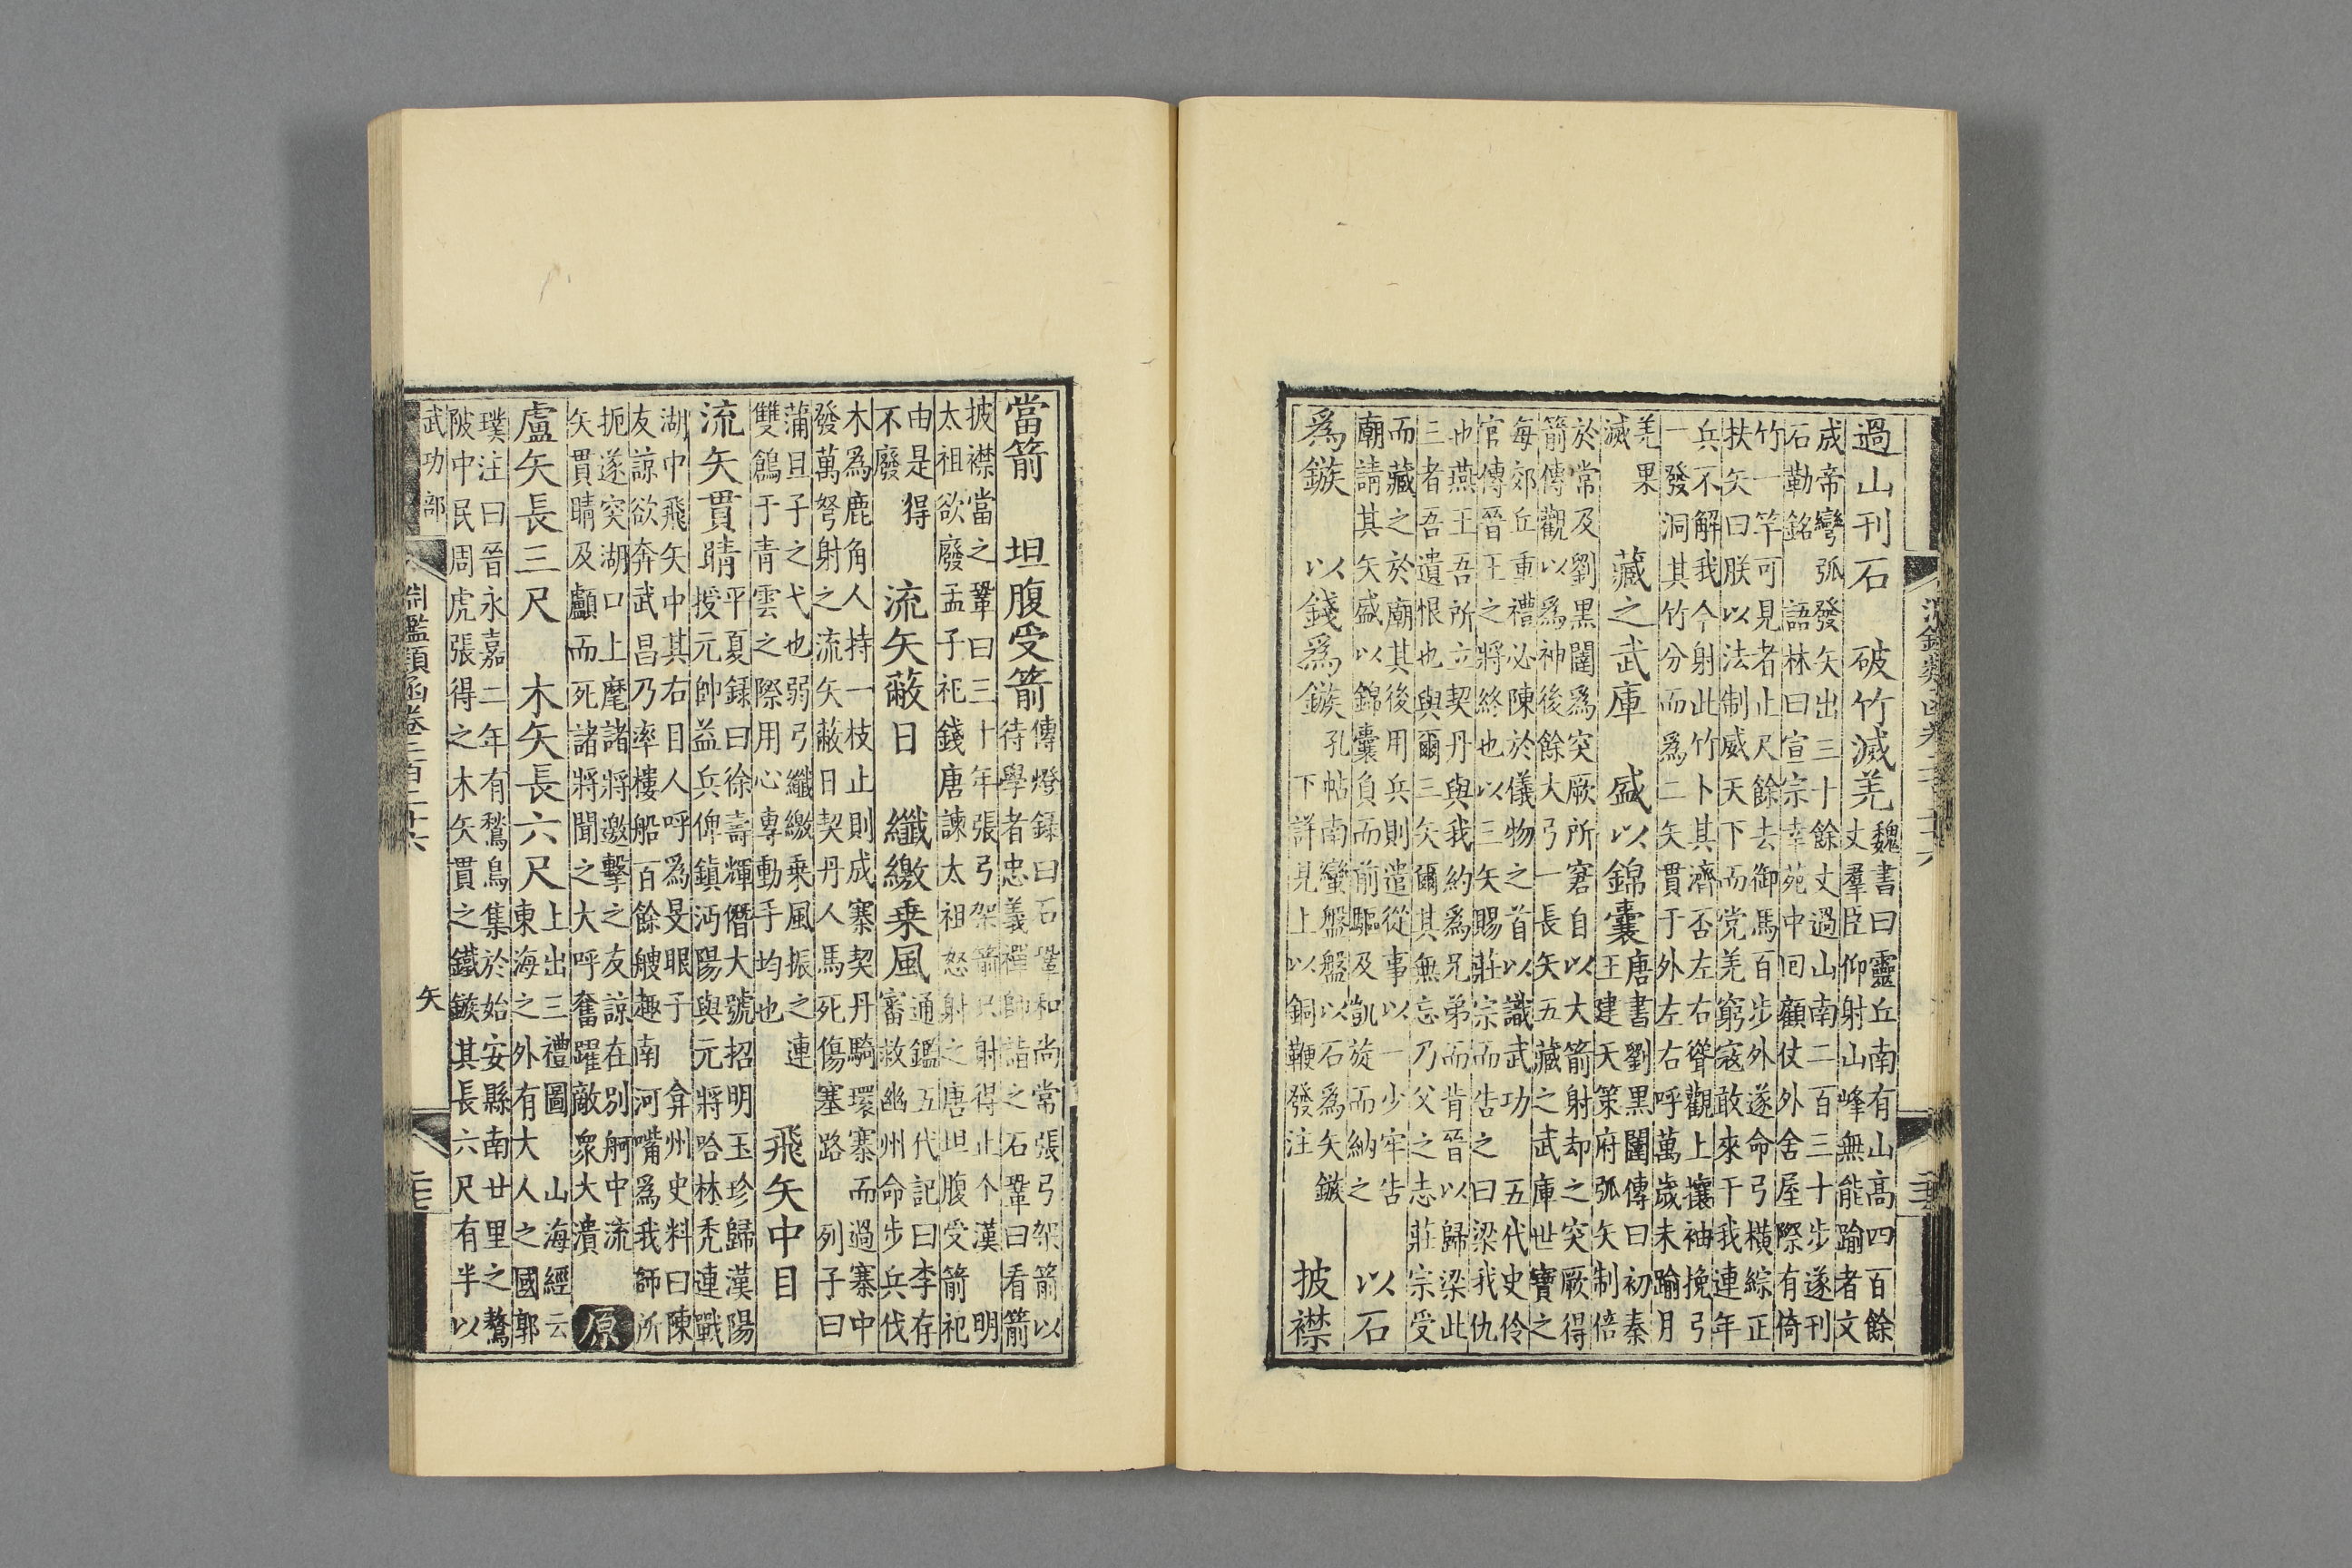 過山刊石　破竹滅羌
魏書曰靈丘南有山高四百餘
丈羣臣仰射山峰無能踰者文
成帝彎弧發矢出三十餘丈過山南二百三十步遂刊
石勒銘　語林曰宣宗幸苑中回顧仗外舍屋際有倚
竹一竿可見者止尺餘去御馬百步外遂命弓橫綜正
扶矢曰朕以法制威天下而党羌窮寇敢來干我連年
兵不解我今射此竹卜其濟否左右聳觀上攘袖挽弓
一發洞其竹分而爲二矢貫于外左右呼萬歲未踰月
羌果
滅
藏之武庫　盛以錦囊
唐書劉黑闥傳曰初秦
王建天策府弧矢制倍
於常及劉黑闥爲突厥所窘自以大箭射却之突厥得
箭傳觀以爲神後餘大弓一長矢五藏之武庫世寶之
每郊丘重禮必陳於儀物之首以識武功　五代史伶
官傳晉王之將終也以三矢賜莊宗而告之曰梁我仇
也燕王吾所立契丹與我約爲兄弟而背晉以歸梁此
三者吾遺恨也與爾三矢爾其無忘乃父之志莊宗受
而藏之於廟其後用兵則遣從事以一少牢告
廟請其矢盛以錦囊負而前驅及凱旋而納之
以石
爲鏃　以錢爲鏃
孔帖南蠻盤盤以石爲矢鏃
下詳見上以銅鞭發注
披襟
當箭　坦腹受箭
傳燈錄曰石鞏和尚常張弓架箭以
待學者忠義禪師詣之石鞏曰看箭
披襟當之鞏曰三十年張弓架箭只射得止个漢　明
太祖欲廢孟子祀錢唐諫太祖怒射之唐坦腹受箭祀
由是得
不廢
流矢蔽日　纖繳乗風
通鑑五代記曰李存
審救幽州命步兵伐
木爲鹿角人持一枝止則成寨契丹騎環寨而過寨中
發萬弩射之流矢蔽日契丹人馬死傷塞路　列子曰
蒲且子之弋也弱弓纖繳乗風振之連
雙鶬于青雲之際用心專動手均也
飛矢中目
流矢貫睛
平夏錄曰徐壽輝僭大號招明玉珍歸漢陽
授元帥益兵俾鎮沔陽與元將哈林禿連戰
湖中飛矢中其右目人呼爲旻眼子　弇州史料曰陳
友諒欲奔武昌乃率樓船百餘艘趣南河嘴爲我師所
扼遂突湖口上麾諸將邀擊之友諒在別舸中流
矢貫睛及顱而死諸將聞之大呼奮躍敵衆大潰
原
盧矢長三尺　木矢長六尺
上出三禮圖　山海經云
東海之外有大人之國郭
璞注曰晉永嘉二年有鶖鳥集於始安縣南廿里之鶩
陂中民周虎張得之木矢貫之鐵鏃其長六尺有半以
武功部
淵鑑類函卷二百二十六
矢